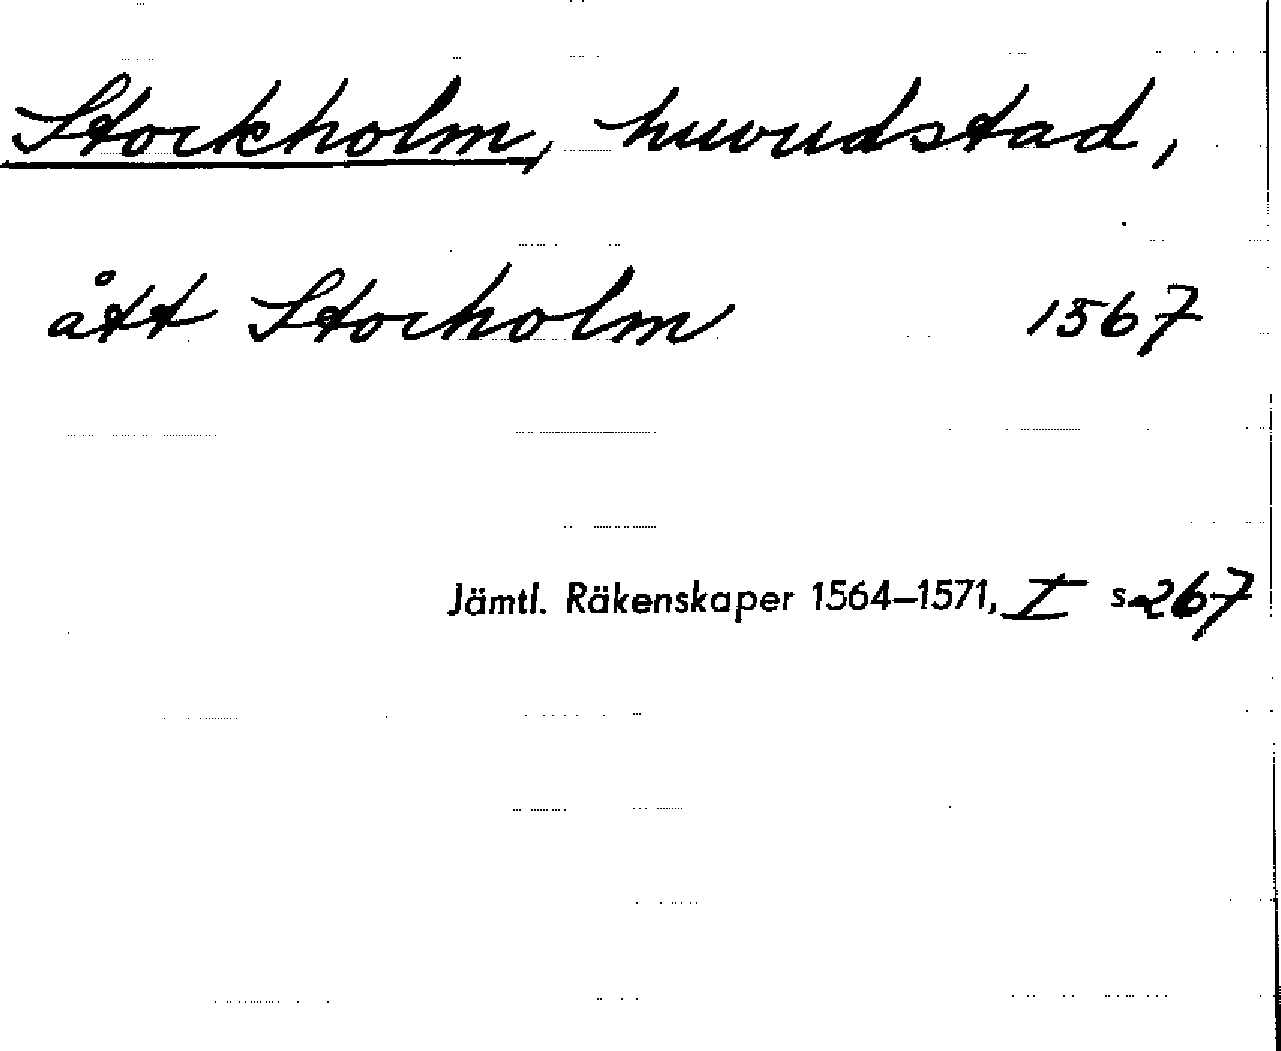 Stockholm, huvudstad,
ått Stocholm 1567
Jämtl. Räkenskaper 1564–1571, I s. 267